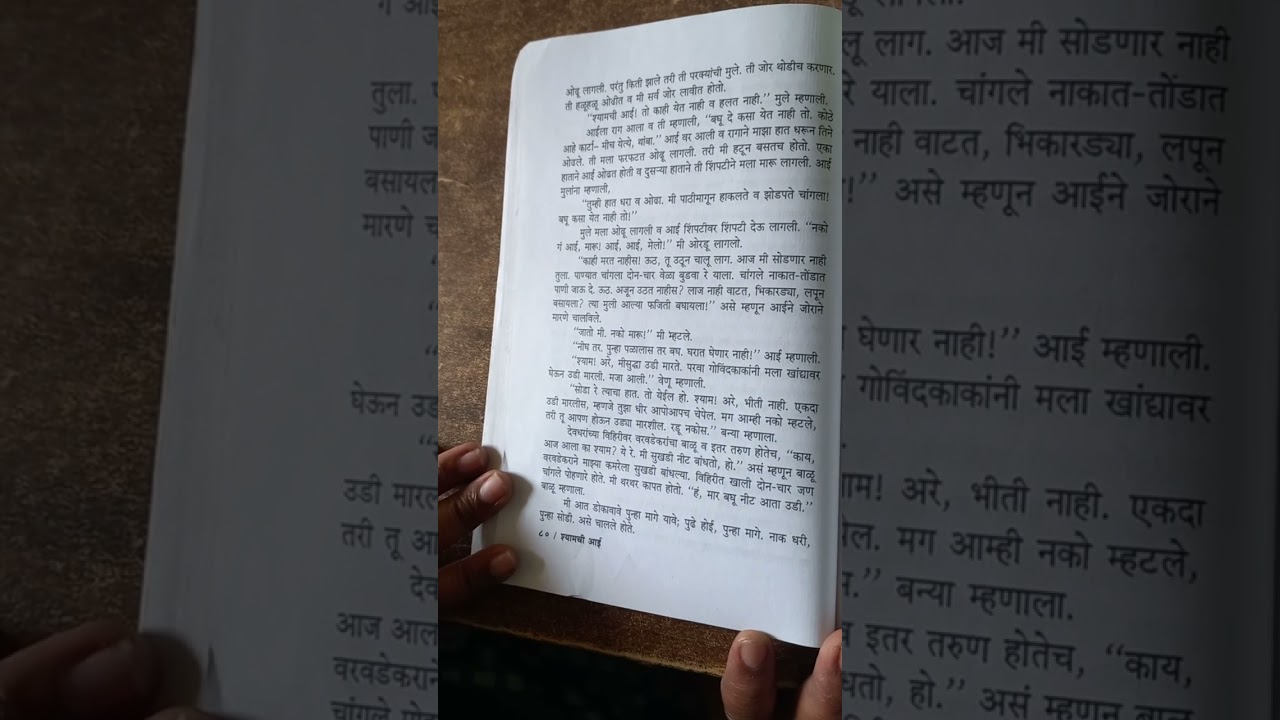 ओढू लागली. परंतु किती झाले तरी ती परक्यांची मुले. ती जोर थोडीच करणार.
ती हळूहळू ओढीत व मी सर्व जोर लावीत होतो.
“श्यामची आई! तो काही येत नाही व हलत नाही.” मुले म्हणाली.
आईला राग आला व ती म्हणाली, “बघू दे कसा येत नाही तो. कोठे
आहे कार्टा– मीच येत्ये, थांबा.” आई वर आली व रागाने माझा हात धरून तिने
ओढले. ती मला फरफटत ओढू लागली. तरी मी हटून बसतच होतो. एका
हाताने आई ओढत होती व दुसऱ्या हाताने ती शिंपटीने मला मारू लागली. आई
मुलांना म्हणाली,
“तुम्ही हात धरा व ओढा. मी पाठीमागून हाकलते व झोडपते चांगला!
बघू कसा येत नाही तो!”
मुले मला ओढू लागली व आई शिंपटीवर शिंपटी देऊ लागली. “नको
गं आई, मारू! आई, आई, मेलो!” मी ओरडू लागलो.
“काही मरत नाहीस! ऊठ, तू उठून चालू लाग. आज मी सोडणार नाही
तुला. पाण्यात चांगला दोन-चार वेळा बुडवा रे याला. चांगले नाकात-तोंडात
पाणी जाऊ दे. ऊठ. अजून उठत नाहीस? लाज नाही वाटत, भिकारड्या, लपून
बसायला? त्या मुली आल्या फजिती बघायला!” असे म्हणून आईने जोराने
मारणे चालविले.
“जातो मी. नको मारू!” मी म्हटले.
“नीघ तर. पुन्हा पळालास तर बघ. घरात घेणार नाही!” आई म्हणाली.
“श्याम! अरे, मीसुद्धा उडी मारते. परवा गोविंदकाकांनी मला खांद्यावर
घेऊन उडी मारली. मजा आली.” वेणू म्हणाली.
“सोडा रे त्याचा हात. तो येईल हो. श्याम! अरे, भीती नाही. एकदा
उडी मारलीस, म्हणजे तुझा धीर आपोआपच चेपेल. मग आम्ही नको म्हटले,
तरी तू आपण होऊन उड्या मारशील. रडू नकोस.” बन्या म्हणाला.
देवधरांच्या विहिरीवर वरवडेकरांचा बाळू व इतर तरुण होतेच, “काय,
आज आला का श्याम? ये रे. मी सुखडी नीट बांधतो, हो.” असं म्हणून बाळू
वरवडेकराने माझ्या कमरेला सुखडी बांधल्या. विहिरीत खाली दोन-चार जण
चांगले पोहणारे होते. मी थरथर कापत होतो. “हं, मार बघू नीट आता उडी.”
बाळू म्हणाला.
मी आत डोकावावे पुन्हा मागे यावे; पुढे होई, पुन्हा मागे. नाक धरी,
पुन्हा सोडी. असे चालले होते.
८० / श्यामची आई